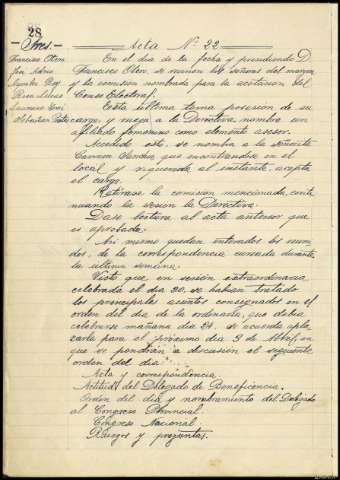 28
Sres.
Acta Nº 22
Francisco Oton
En el día de la fecha y presidiendo D.
Francisco Oton, se reunen los señores del margen
y la comisión nombrada para la revisión del
Censo Electoral.
Esta última toma posesión de su
cargo, y ruega a la Directiva, nombre un
afiliado femenino como elemento asesor.
Accedido esto, se nombra a la señorita
Carmen que encontrandose en el
local y requerida al instante, acepta
el cargo.
Retirase la comisión mencionada, conti
nuando la sesión la Directiva.
Dase lectura al acta anterior que
es aprobada.
Asi mismo quedan enterados los reuni
dos, de la correspondencia cursada durante
la última semana.
Visto que en sesión extraordinaria
celebrada el día 20, se habian tratado
los principales asuntos consignados en el
orden del día de la ordinaria, que debia
celebrarse mañana día 24, se acuerda apla
zarla para el próximo día 2 de Abril, en
que se pondrán a discusión el siguiente
orden del día:
Acta y correspondencia.
Actitud del Delegado de Beneficencia.
Orden del día y nombramiento del Delegado
al Congreso Provincial.
Congreso Nacional.
Ruegos y preguntas.